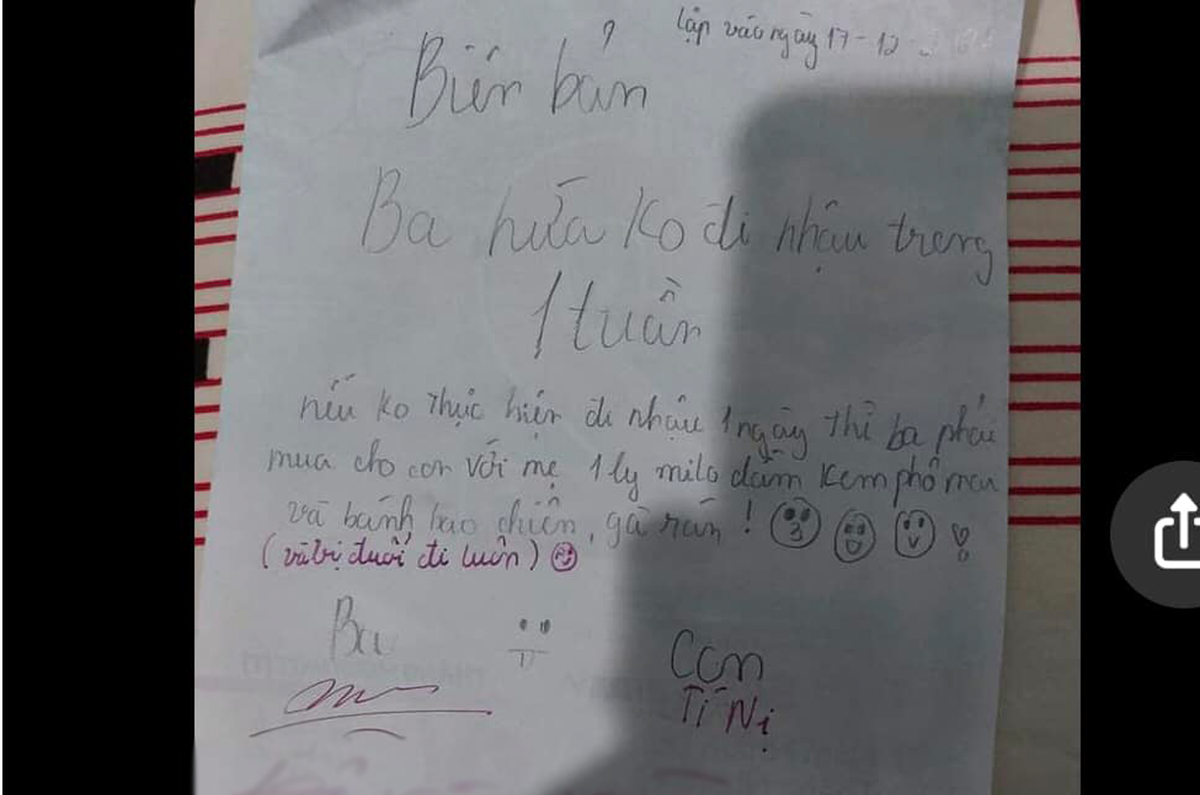 lập vào ngày 17-12
Biên bản
Ba hứa ko đi nhậu trong
1 tuần
nếu ko thực hiện đi nhậu 1 ngày thì ba phải
mua cho con với mẹ 1 ly milo dầm kem phô mai
và bánh bao chiên, gà rán!
(và bị đuổi đi luôn)
Ba
Con
Tí Nị